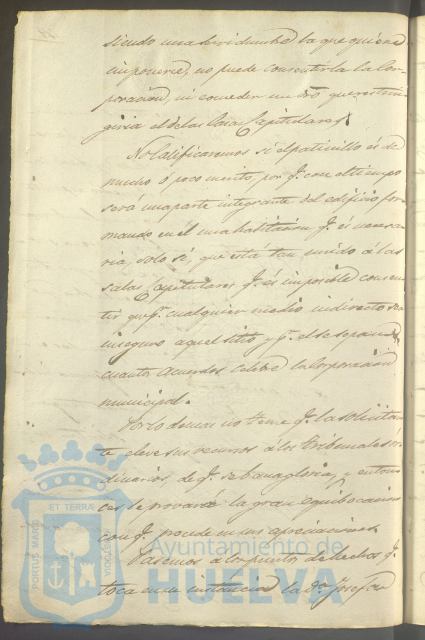 siendo una servidumbre la que quiere
imponerse, no puede consentirla la Cor-
poracion, ni conceder un dro que restrin-
giria el de las Casas Capitulares.
No calificaremos si el patinillo es de
mucho ó poco merito, por q. con el tiempo
será una parte integrante del edificio for-
mando en él una habitacion q. es necesa-
ria, solo si, que está tan unido á las
salas Capitulares q. es imposible consen-
tir que p. cualquier medio indirecto sea
inseguro aquel sitio y q. el se sepan
cuantos acuerdos celebre la Corporacion
municipal.
Por lo demas no teme q. la solicitan-
te eleve sus recursos á los tribunales or-
dinarios, de q. se banagloria, y enton-
ces se provará la gran equibocacion
con q. procede en sus apreciaciones.
Pasemos á los puntos de hechos q.
toca en su instancia la Da. Josefa
PORTUS MARIS
ET TERRÆ
CUSTODIA
Ayuntamiento de
HUELVA